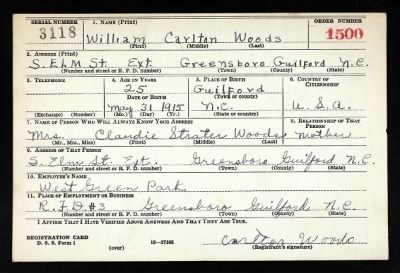 SERIAL NUMBER 1. NAME (Print) ORDER NUMBER
3118 William Carlton Woods 1500
(First) (Middle) (Last)
2. ADDRESS (Print)
S. ELM St. Ext. Greensboro Guilford N.C.
(Number and street or R. F. D. number) (Town) (County) (State)
3. TELEPHONE 4. AGE IN YEARS 5. PLACE OF BIRTH 6. COUNTRY OF CITIZENSHIP
25 Guilford
DATE OF BIRTH (Town or county)
May 31 1915 N.C. U.S.A.
(Exchange) (Number) (Mo.) (Day) (Yr.) (State or country)
7. NAME OF PERSON WHO WILL ALWAYS KNOW YOUR ADDRESS 8. RELATIONSHIP OF THAT PERSON
Mrs. Claudie Strater Woods Mother
(Mr., Mrs., Miss) (First) (Middle) (Last)
9. ADDRESS OF THAT PERSON
S. Elm St. Ext. Greensboro Guilford N.C.
(Number and street or R. F. D. number) (Town) (County) (State)
10. EMPLOYER'S NAME
West Green Park
11. PLACE OF EMPLOYMENT OR BUSINESS
R.F.D. #3 Greensboro Guilford N.C.
(Number and street or R. F. D. number) (Town) (County) (State)
I AFFIRM THAT I HAVE VERIFIED ABOVE ANSWERS AND THAT THEY ARE TRUE.
REGISTRATION CARD
D. S. S. Form 1 (over) 16—17105 Carlton Woods
(Registrant's signature)